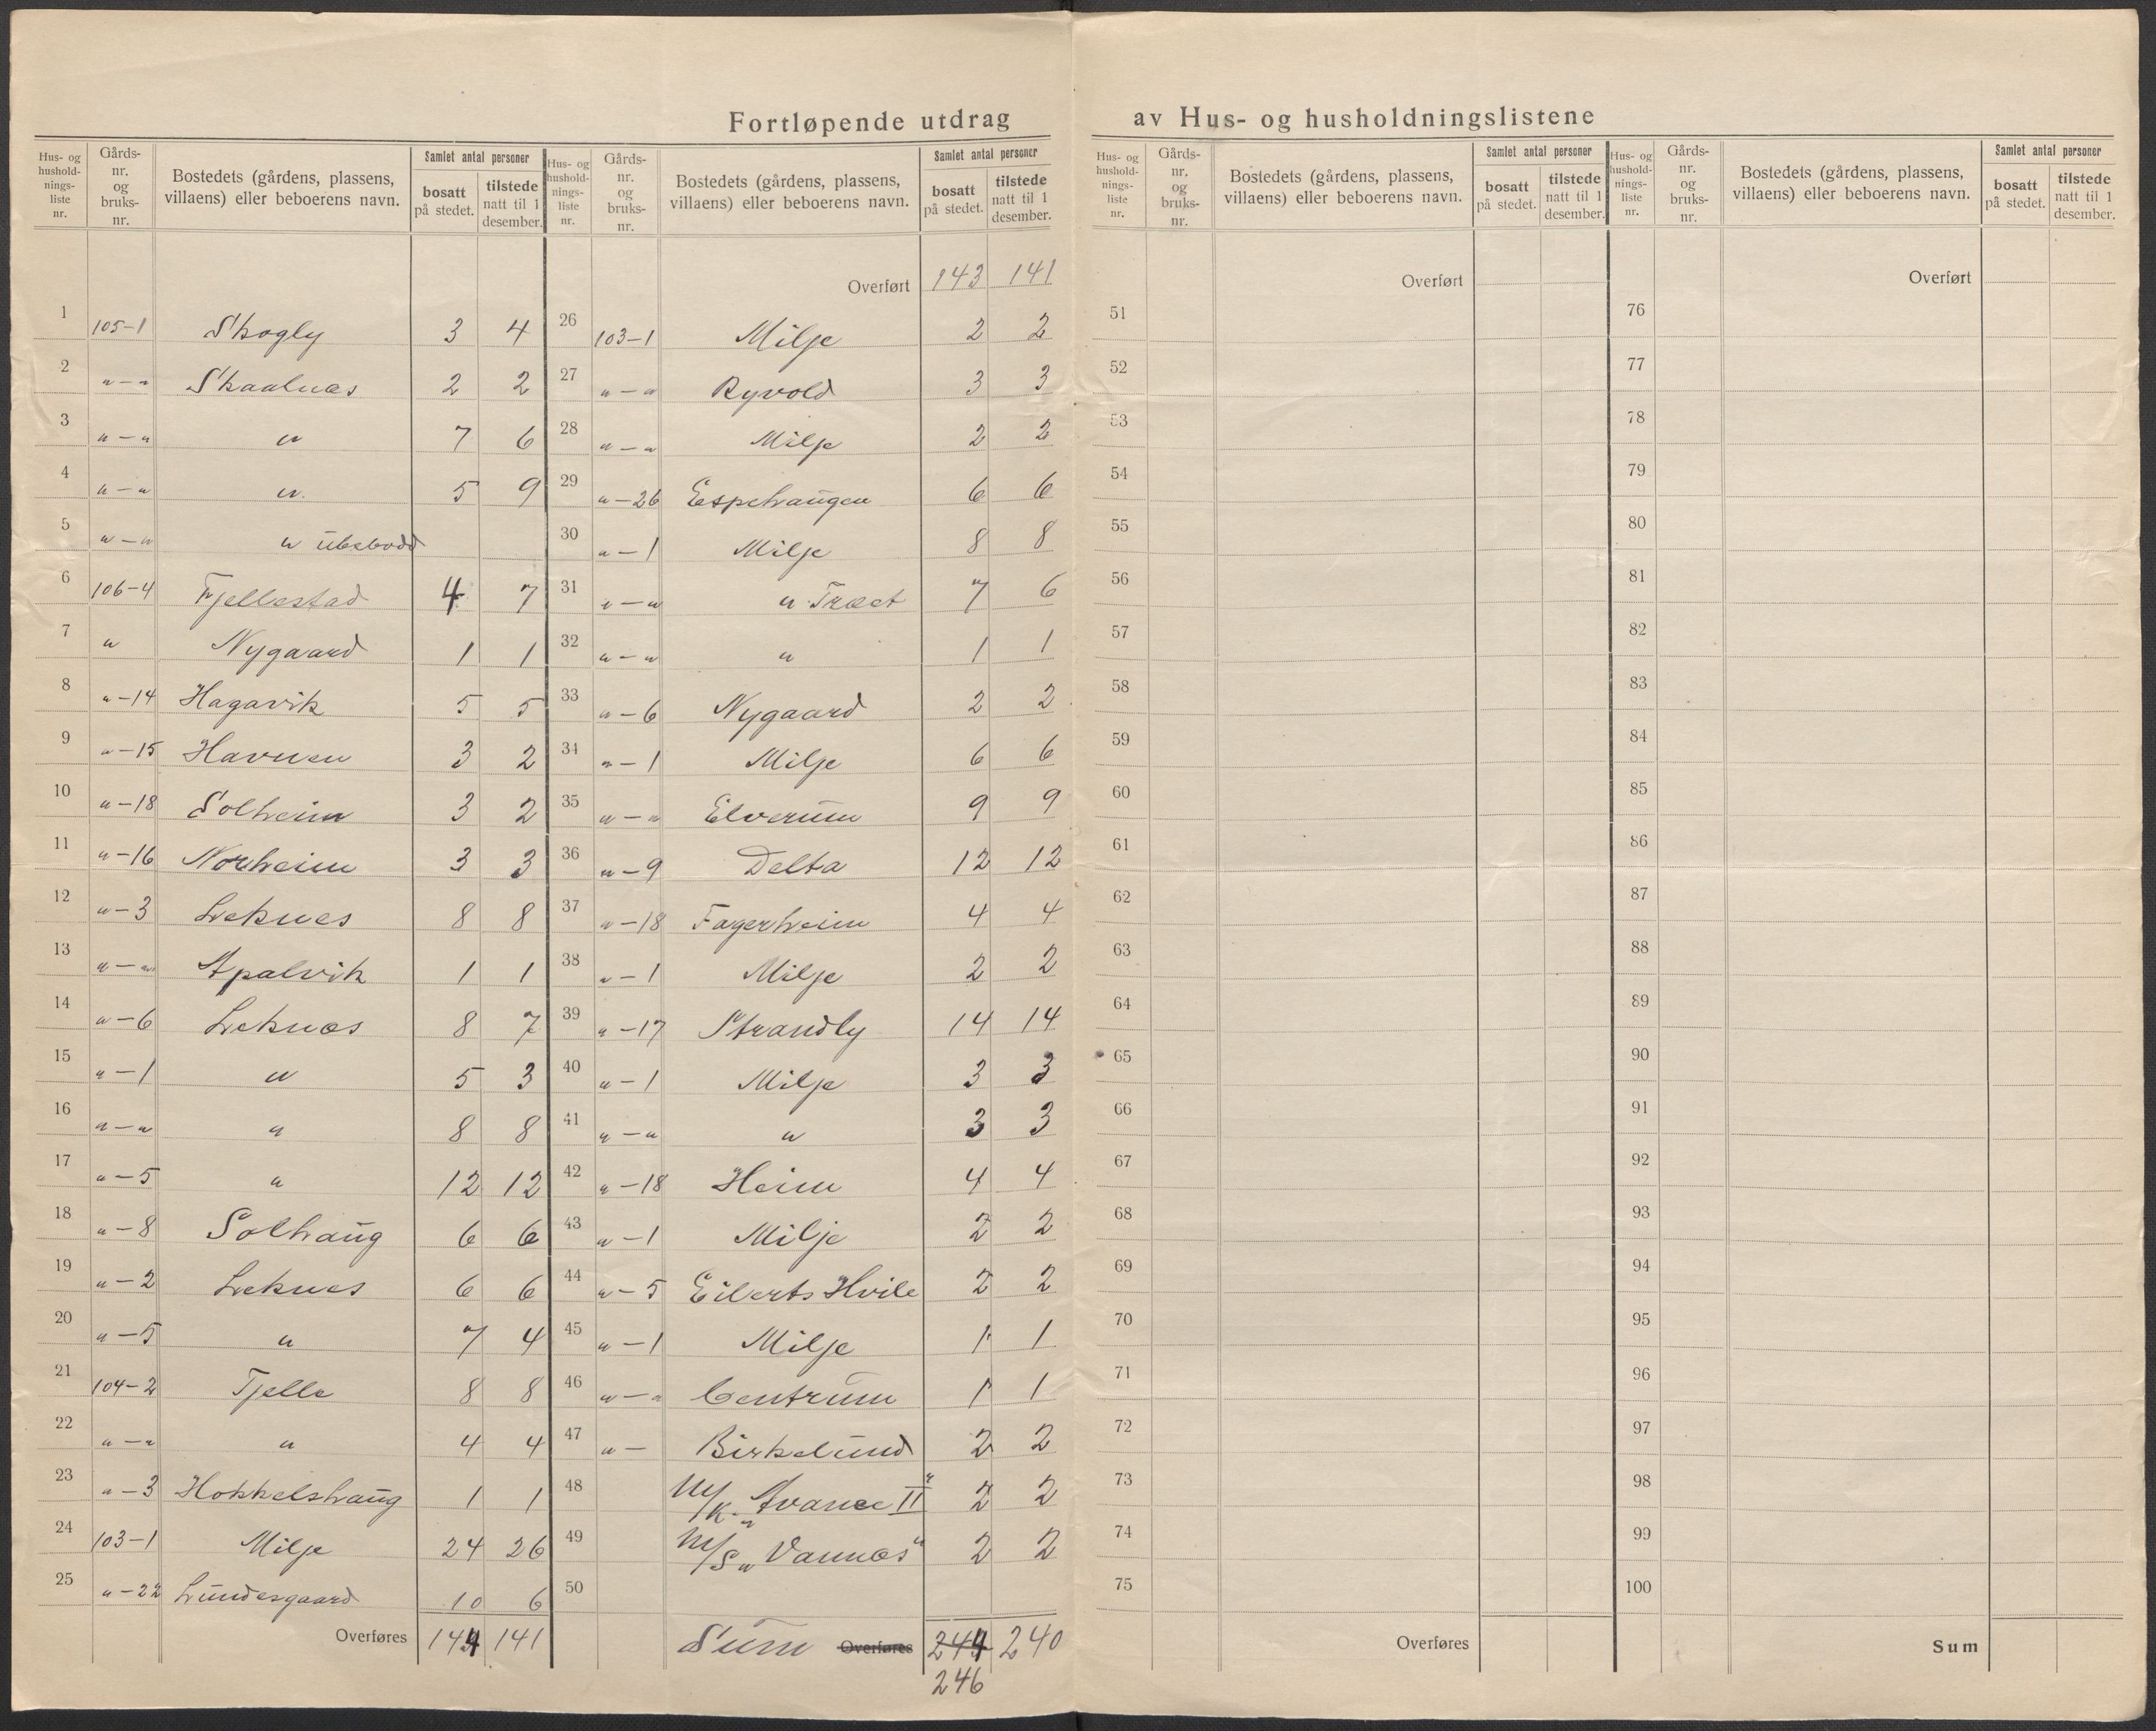 Fortløpende utdrag av Hus- og husholdningslistene
Hus- og hushold-nings-liste nr. | Gårds-nr. og bruks-nr. | Bostedets (gårdens, plassens, villaens) eller beboerens navn. | Samlet antal personer | bosatt på stedet. | tilstede natt til 1 desember.
1 105-1 Skogly 3 4
2 „-„ Skaalnes 2 2
3 „-„ „ 7 6
4 „-„ „ 5 9
5 „-„ „ ubebodd
6 106-4 Fjellestad 4 7
7 „ Nygaard 1 1
8 „-14 Hagavik 5 5
9 „-15 Havnen 3 2
10 „-18 Solheim 3 2
11 „-16 Norheim 3 3
12 „-3 Leknes 8 8
13 „-„ Apalvik 1 1
14 „-6 Leknes 8 7
15 „-1 „ 5 3
16 „-„ „ 8 8
17 „-5 „ 12 12
18 „-8 Solhaug 6 6
19 „-2 Leknes 6 6
20 „-5 „ 7 4
21 104-2 Tjelle 8 8
22 „-„ „ 4 4
23 „-3 Hokkelshaug 1 1
24 103-1 Milje 24 26
25 „-22 Lundesgaard 10 6
Overføres 144 141
Hus- og hushold-nings-liste nr. | Gårds-nr. og bruks-nr. | Bostedets (gårdens, plassens, villaens) eller beboerens navn. | Samlet antal personer | bosatt på stedet. | tilstede natt til 1 desember.
Overført 143 141
26 103-1 Milje 2 2
27 „-„ Ryvold 3 3
28 „-„ Milje 2 2
29 „-26 Espehaugen 6 6
30 „-1 Milje 8 8
31 „-„ „ Træet 7 6
32 „-„ „ 1 1
33 „-6 Nygaard 2 2
34 „-1 Milje 6 6
35 „-„ Elverum 9 9
36 „-9 Delta 12 12
37 „-18 Fagerheim 4 4
38 „-1 Milje 2 2
39 „-17 Strandly 14 14
40 „-1 Milje 3 3
41 „-„ „ 3 3
42 „-18 Heim 4 4
43 „-1 Milje 2 2
44 „-5 Eilerts Hvile 2 2
45 „-1 Milje 1 1
46 „-„ Centrum 1 1
47 „- Birkelund 2 2
48 M/K. „Avance II" 2 2
49 M/S „Vannes" 2 2
50
Sum Overføres 244 240
246
Hus- og hushold-nings-liste nr. | Gårds-nr. og bruks-nr. | Bostedets (gårdens, plassens, villaens) eller beboerens navn. | Samlet antal personer | bosatt på stedet. | tilstede natt til 1 desember.
Overført
51
52
53
54
55
56
57
58
59
60
61
62
63
64
65
66
67
68
69
70
71
72
73
74
75
Overføres
Hus- og hushold-nings-liste nr. | Gårds-nr. og bruks-nr. | Bostedets (gårdens, plassens, villaens) eller beboerens navn. | Samlet antal personer | bosatt på stedet. | tilstede natt til 1 desember.
Overført
76
77
78
79
80
81
82
83
84
85
86
87
88
89
90
91
92
93
94
95
96
97
98
99
100
Sum